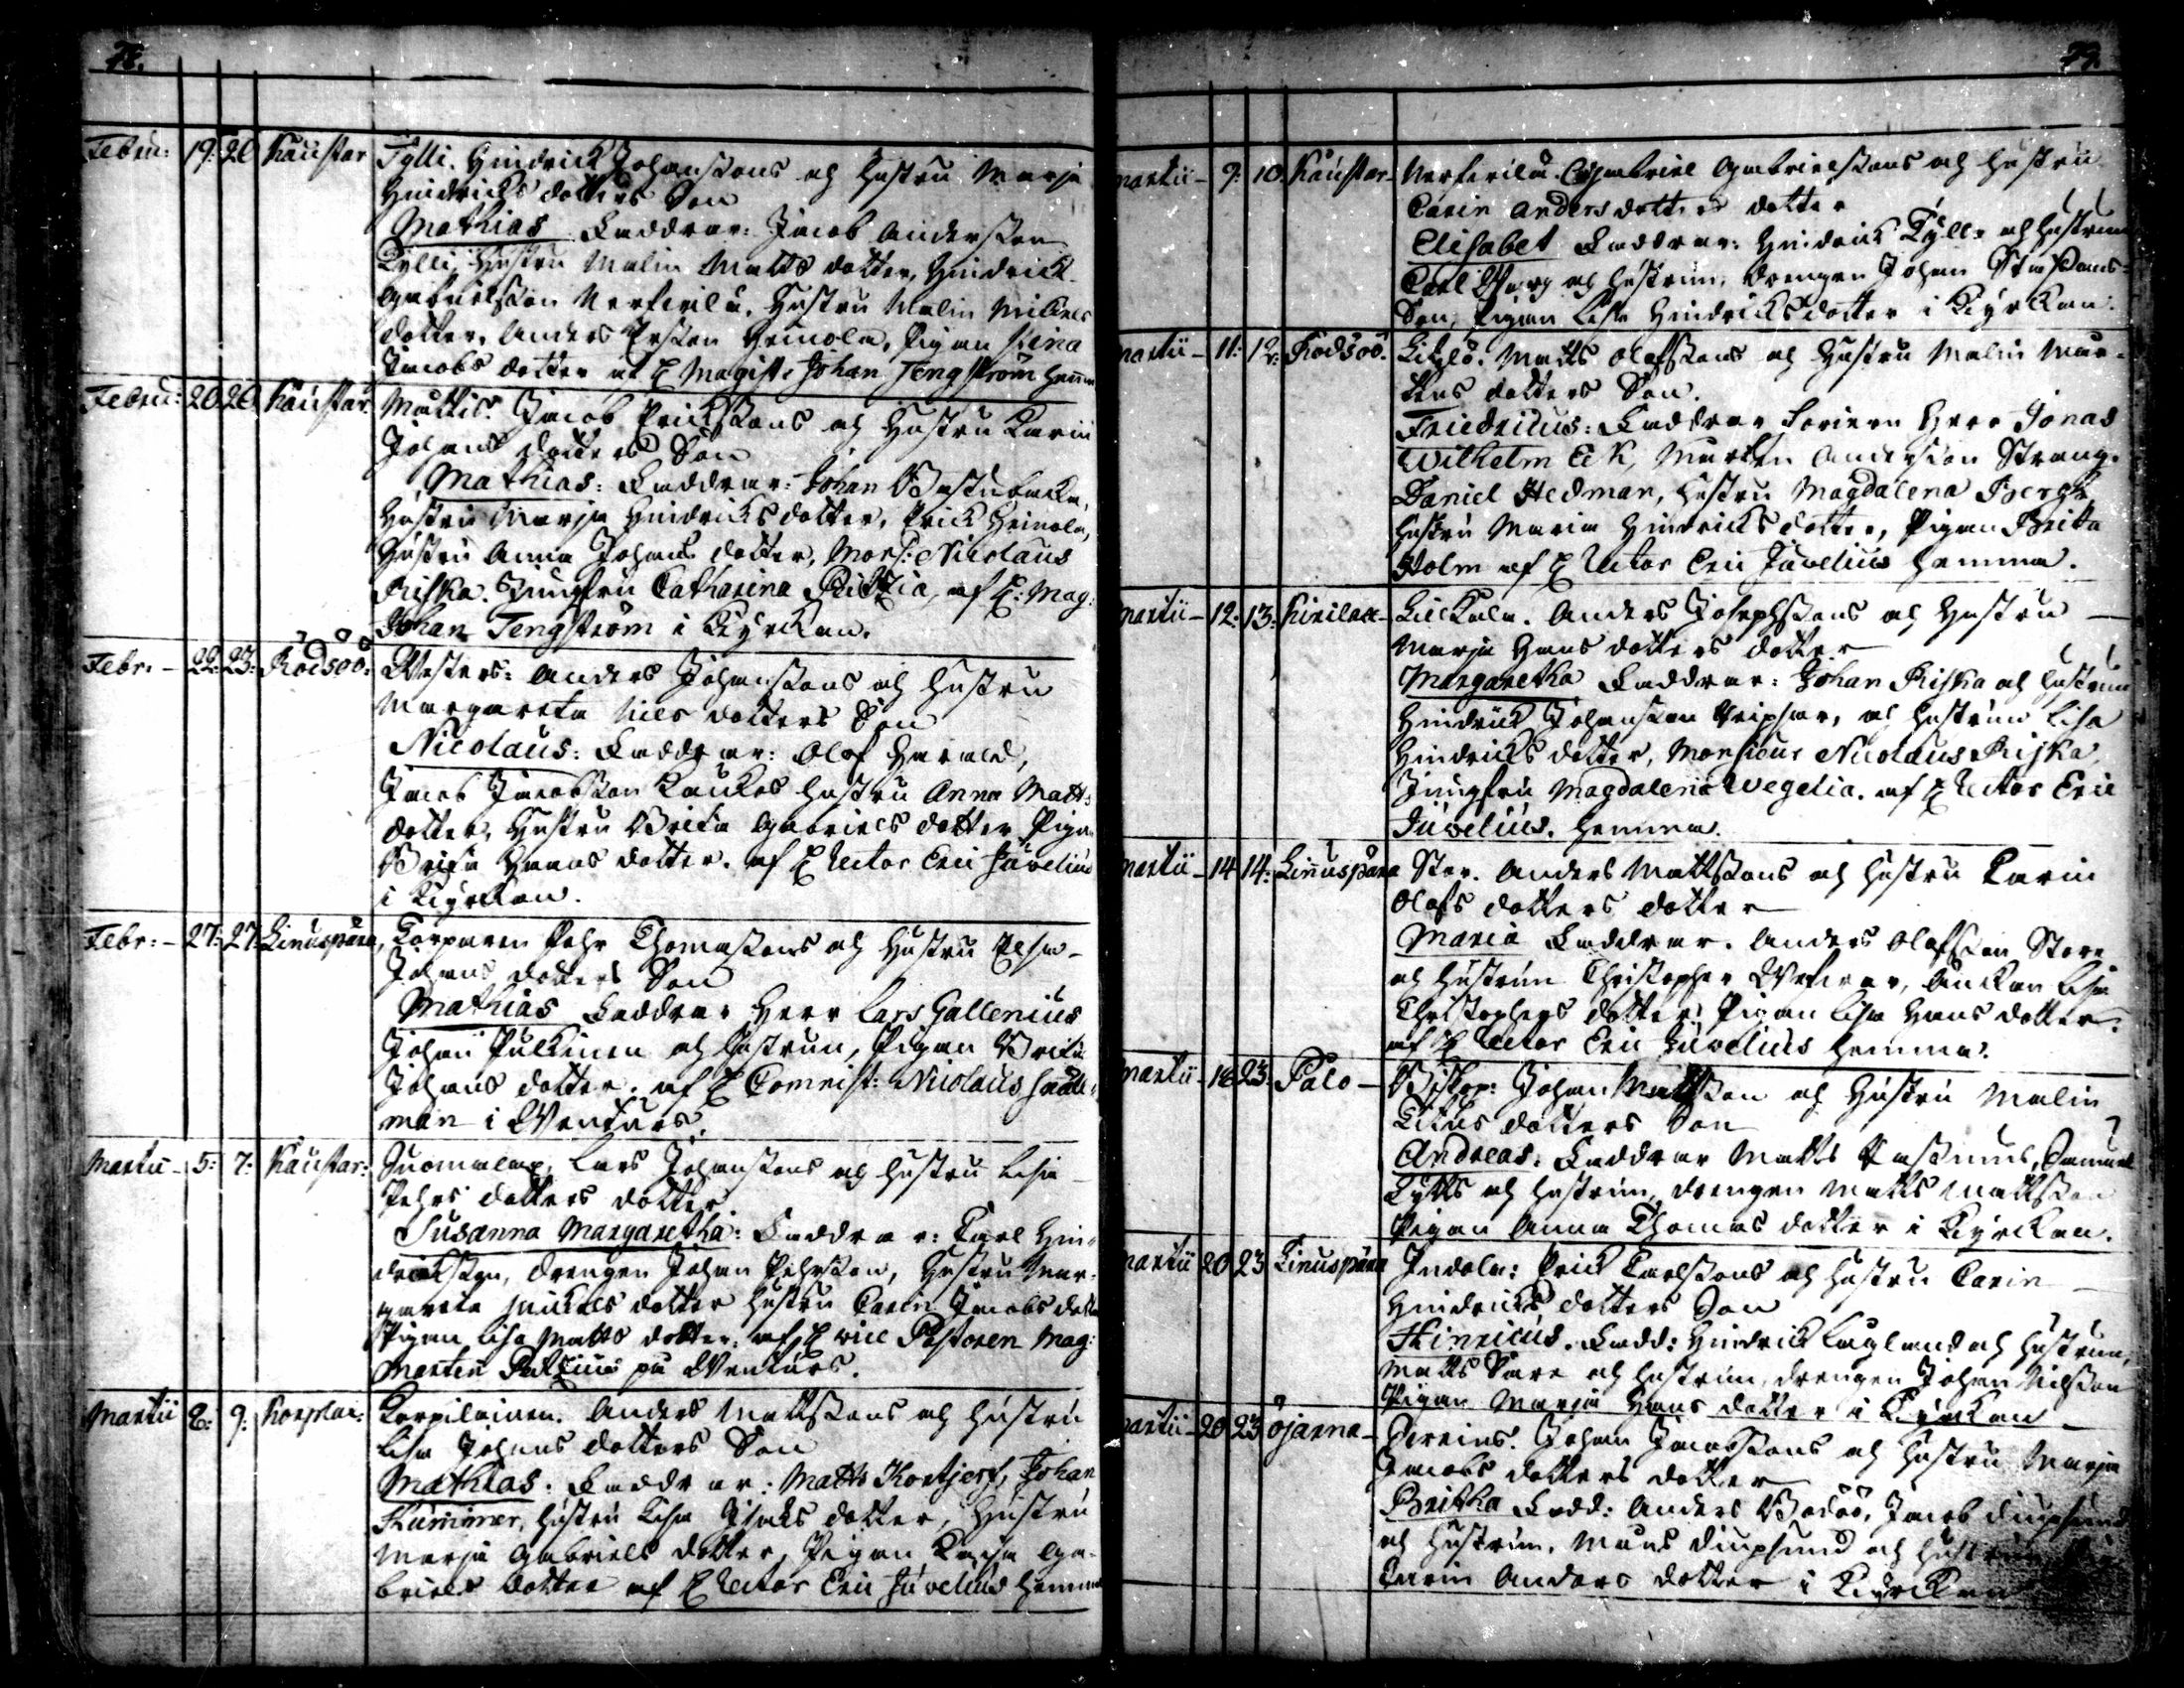 78.
Febru: 19: 20 Kaustar Tylli. Hindrick Johanssons och hustru Marja
Hindricks dotters Son
Mathias Faddrar: Jacob Andersson
Tylli, hustru Malin Matts dotter, Hindrick
Gabrielsson hustru Malin Mickels
dotter, Anders Ersson Heinola, Pigan Stina
Jacobs dotter af Magist: Johan Tengström hemma
Febru: 20 20 Kaustar Mattis. Jacob Ericksons och Hustru Karin
Johans dotters Son
Mathias: Faddrar: Johan Bastubacka,
Hustru Marja Hindricks dotter, Erick Heinola,
Hustru Anna Johans dotter, Mons: Nicolaus
Riska. Jungfru Catharina Peitzia, af Mag:
Johan Tengström i Kyrckan.
Febr: 22: 23: Rödsöö: Westers: Anders Johanssons och hustru
Margareta Nils dotters Son
Nicolaus: Faddrar: Olof Harald,
Jacob Jacobsson Kaukos hustru Anna Matts
dotter, Hustru Brita Gabriels dotter Pigan
Brita Hans dotter. af Rector Eric Juvelius
i Kyrckan.
Febr: 27: 27: Linuspära, Torparen Pehr Thomassons och Hustru Elsa
Johans dotters Son
Mathias Faddrar Herr Lars Gallenius
Johan Pulkinen och hustrun, Pigan Brita
Johans dotter. af Comnist: Nicolaus
man i Wentuas.
Martii 5: 7: Kaustar: Lars Johanssons och hustru Lisa
Pehrs dotters dotter
Susanna Margaretha: Faddrar: Carl Hin-
dricksson, drengen Johan Pehrsson, Hustru Mar-
gareta Mickels dotter hustru Carin Jacobs dotter
Pigan Lisa Matts dotter. af vice Pastoren Mag:
Marten Peitzius på Wentuas.
Martii 8: 9: Korplax: Korpilainen. Anders Mattssons och hustru
Lisa Johans dotters Son
Mathias: Faddrar: Matts Kortjerf, Johan
Kummer, hustru Lisa Isaks dotter, Hustru
Marja Gabriels dotter, Pigan Kaisa Ga-
briels dotter af Rector Eric Juvelius hemma
79.
Martii 9: 10. Kaustar Gabriel Gabrielssons och hustru
Carin Anders dotters dotter
Elisabet Faddrar: Hindrick Tylli och hustrun
Carl och hustrun, drengen Johan Staffans-
Son, Pigan Lisa Hindricks dotter i Kyrckan.
Martii 11: 12: Rödsöö. Matts Olofssons och Hustru Malin Mar-
tens dotters Son.
Friedricus: Faddrar Herr Jonas
Wilhelm Eek, Marten Andersson Strang.
Daniel Hedman, hustru Magdalena Bergh,
hustru Maria Hindricks dotter, Pigan Brita
Holm af Rector Eric Juvelius hemma.
Martii 12: 13: Kirilax Anders Josephssons och Hustru
Marja Hans dotters dotter
Margaretha Faddrar: Johan Riska och hustrun
Hindrick Johansson och hustrun Lisa
Hindricks dotter, Monsieur Nicolaus Riska,
Jungfru Magdalena Wegelia. af Rector Eric
Juvelius. hemma.
Martii 14 14: Linuspära Stor. Anders Mattssons och hustru Carin
Olofs dotters dotter
Maria Faddrar. Anders Olofsson Store
och hustrun Christopher Enckan Lisa
Christophers dotter, Pigan Lisa Hans dotter.
af Rector Eric Juvelius hemma.
Martii 18 23: Palo Biskop: Johan Mattsson och Hustru Malin
Titus dotters Son
Andreas: Faddrar Matts Samuel
Tytts och hustrun, drengen Matts Mattsson
Pigan Anna Thomas dotter i Kyrckan.
Martii 20 23 Linuspära Indola: Erick Carlssons och hustru Carin
Hindricks dotters Son
Hinricus. Fadd: Hindrick Laglund och hustrun,
Matts Säre och hustrun, drengen Johan Nilsson
Pigan Marja Hans dotter i Kyrckan
Martii 20 23 Öjanna Sereius. Johan Jacobssons och hustru Marja
Jacobs dotters dotter
Britha Fadd: Anders Bodöö, Jacob Diupsund
och hustrun, Mans Diupsund och hustrun
Carin Anders dotter i Kyrckan